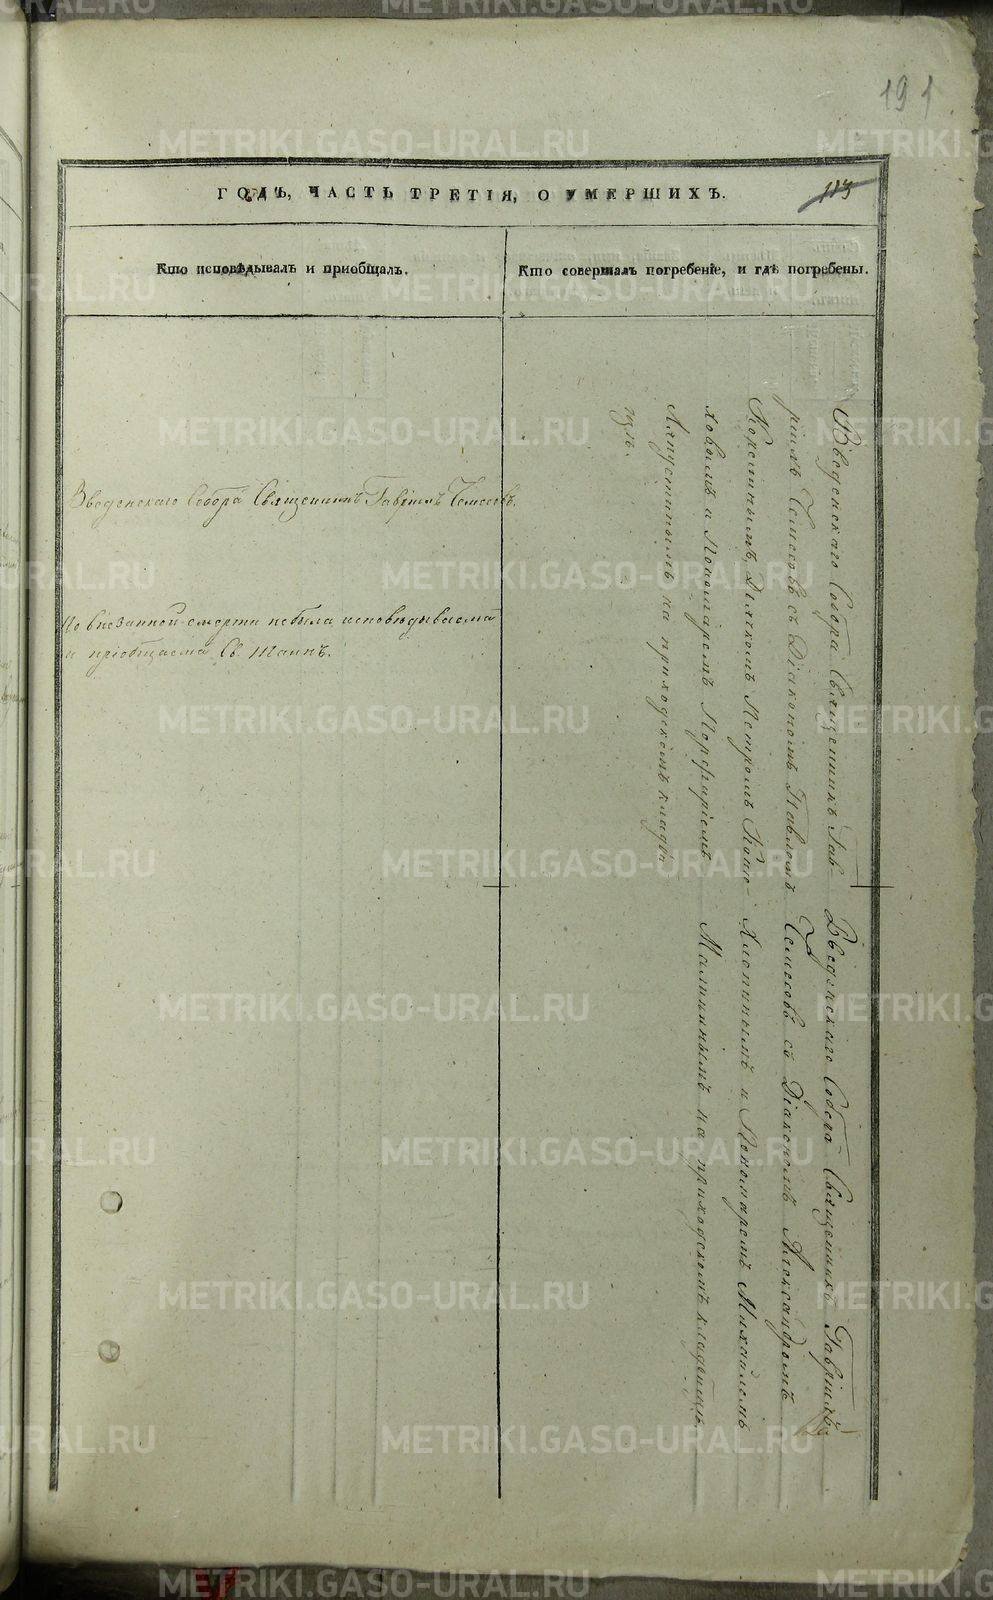 191
ГОДЪ, ЧАСТЬ ТРЕТІЯ, О УМЕРШИХЪ.
113
Кто исповѣдывалъ и приобщалъ.
Кто совершалъ погребеніе, и гдѣ погребены.
Введенскаго Собора Священникъ Гавріилъ
По внезапной смерти небыла исповѣдываема
и пріобщаема Св. Таинъ.
Введенскаго Собора Священникъ Гав-
ріилъ съ Діакономъ Павломъ
Дьячкомъ Петромъ
и Пономаремъ Порфиріемъ
Ляпустинымъ на приходскомъ кладби
Введенскаго Собора Священникъ Гавріилъ
съ Діакономъ Александромъ
и Пономаремъ Михаиломъ
Малининымъ на приходскомъ кладбищѣ.
METRIKI.GASO-URAL.RU